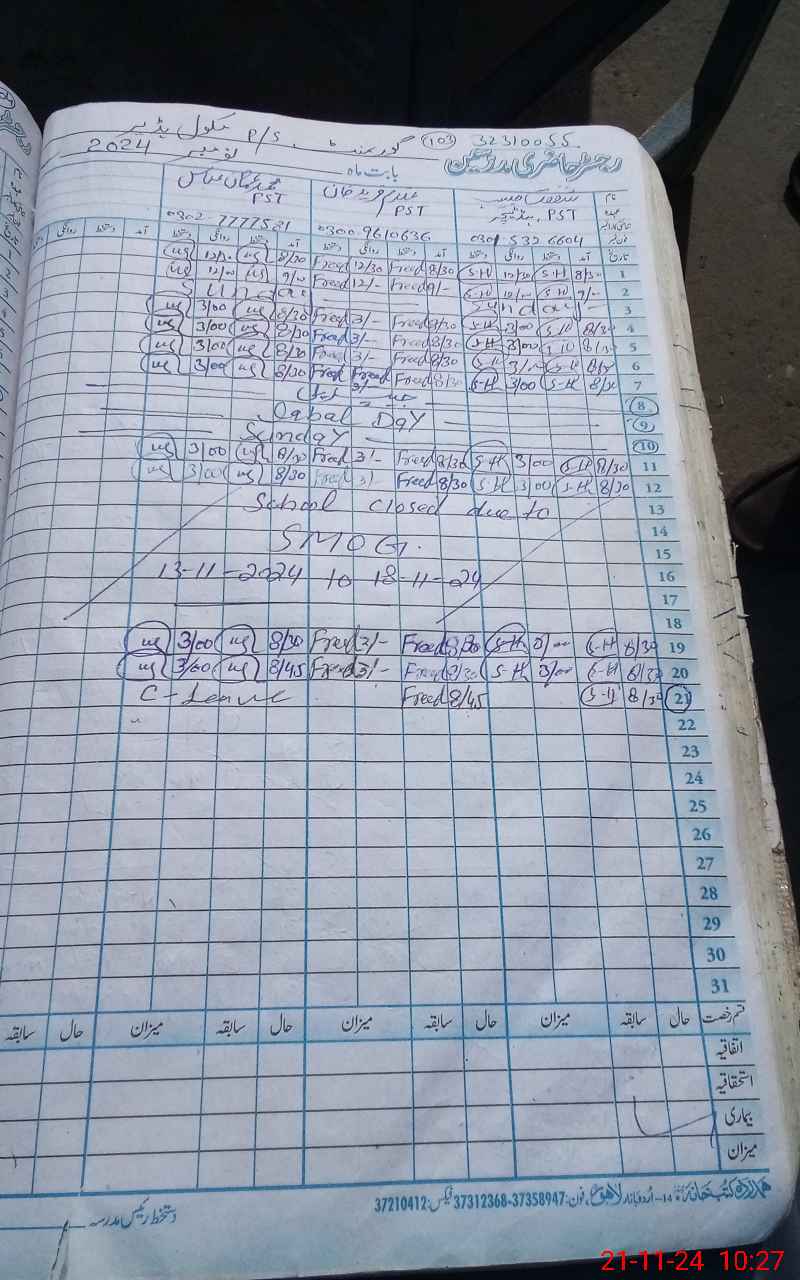 103 32310055
رجسٹر حاضری مدرسین
گورنمنٹ P/S سکول
بابت ماہ نومبر 2024
نام
PST ہیڈ ٹیچر
PST
PST
0301 5326604 0300 9610636 0302 7777521
تاریخ آمد دستخط روانگی دستخط آمد دستخط روانگی دستخط آمد دستخط روانگی دستخط آمد دستخط روانگی
1 8/30 S-H 12/30 S-H 8/30 Freed 12/30 Freed 8/30 12/30
2 9/- S-H 12/00 S-H 9/- Freed 12/- Freed 9/00 12/00
3 Sunday Sunday
4 8/30 S-H 3/00 S-H 8/30 Freed 3/- Freed 8/30 3/00
5 8/30 S-H 3/00 S-H 8/30 Freed 3/- Freed 8/30 3/00
6 8/30 S-H 3/00 S-H 8/30 Freed 3/- Freed 8/30 3/00
7 8/30 S-H 3/00 S-H 8/30 Freed 3/- Freed 8/30 3/00
8
9 Iqbal Day
10 Sunday
11 8/30 S-H 3/00 S-H 8/30 Freed 3/- Freed 8/30 3/00
12 8/30 S-H 3/00 S-H 8/30 Freed 3/- Freed 8/30 3/00
13 School closed due to
14
15 SMOG.
16 13-11-2024 to 18-11-24
17
18
19 8/30 S-H 3/00 S-H 8/30 Freed 3/- Freed 8/30 3/00
20 8/30 S-H 3/00 S-H 8/30 Freed 3/- Freed 8/45 3/00
21 8/30 S-H 8/45 Freed C-Leave
22
23
24
25
26
27
28
29
30
31
قسم رخصت حال سابقہ میزان حال سابقہ میزان حال سابقہ میزان حال سابقہ
اتفاقیہ
استحقاقیہ
بیماری
میزان
ہمدرد کتب خانہ 14-اردو بازار لاہور، فون: 37358947-37312368 فیکس: 37210412
دستخط رئیس مدرسہ
21-11-24 10:27